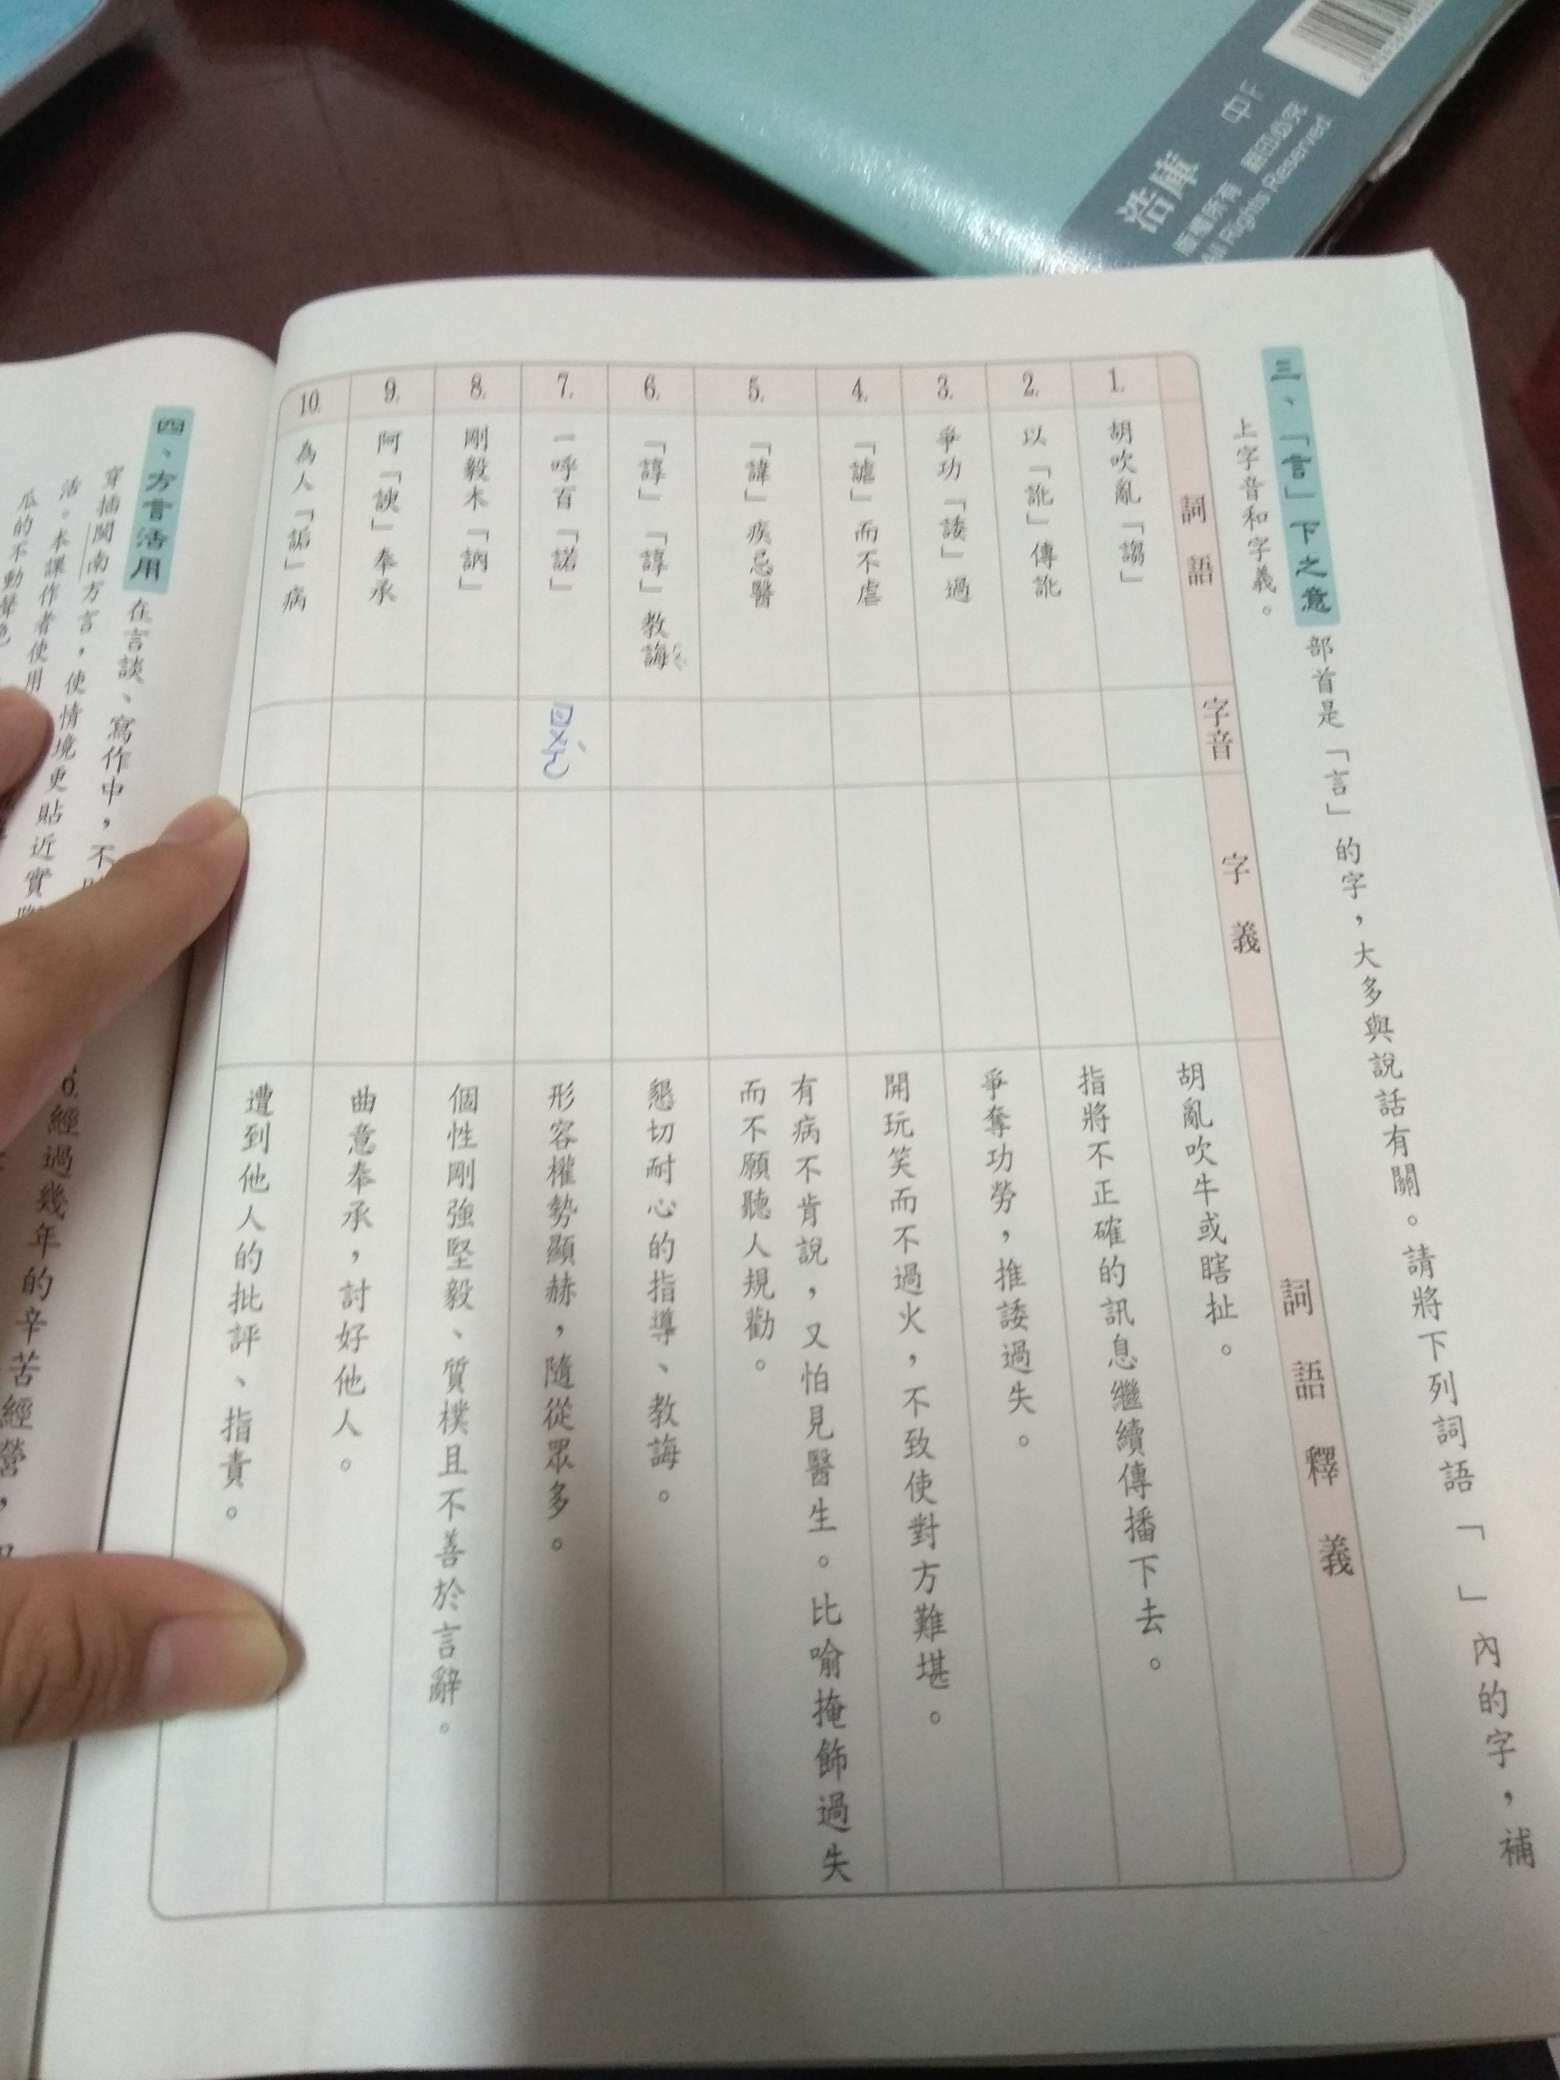 三、「言」下之意 部首是「言」的字，大多與說話有關。請將下列詞語「 」內的字，補
上字音和字義。
詞語 字音 字義 詞語釋義
1. 胡吹亂「謅」 胡亂吹牛或瞎扯。
2. 以「訛」傳訛 指將不正確的訊息繼續傳播下去。
3. 爭功「諉」過 爭奪功勞，推諉過失。
4. 「謔」而不虐 開玩笑而不過火，不致使對方難堪。
5. 「諱」疾忌醫 有病不肯說，又怕見醫生。比喻掩飾過失
而不願聽人規勸。
6. 「諄」「諄」教誨 懇切耐心的指導、教誨。
7. 一呼百「諾」 ㄋㄨㄛˋ 形容權勢顯赫，隨從眾多。
8. 剛毅木「訥」 個性剛強堅毅、質樸且不善於言辭。
9. 阿「諛」奉承 曲意奉承，討好他人。
10. 為人「詬」病 遭到他人的批評、指責。
四、方言活用 在言談、寫作中，不
穿插閩南方言，使情境更貼近實
活。本課作者使用
瓜的不動聲色
經過幾年的辛苦經營，
浩庫
版權所有 翻印必究
All Rights Reserved